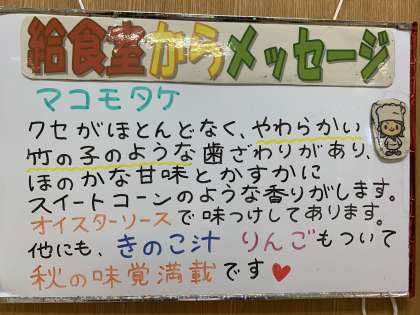 給食室からメッセージ
マコモタケ
クセがほとんどなく、やわらかい
竹の子のような歯ざわりがあり、
ほのかな甘味とかすかに
スイートコーンのような香りがします。
オイスターソースで味つけしてあります。
他にも、きのこ汁 りんごもついて
秋の味覚満載です♥